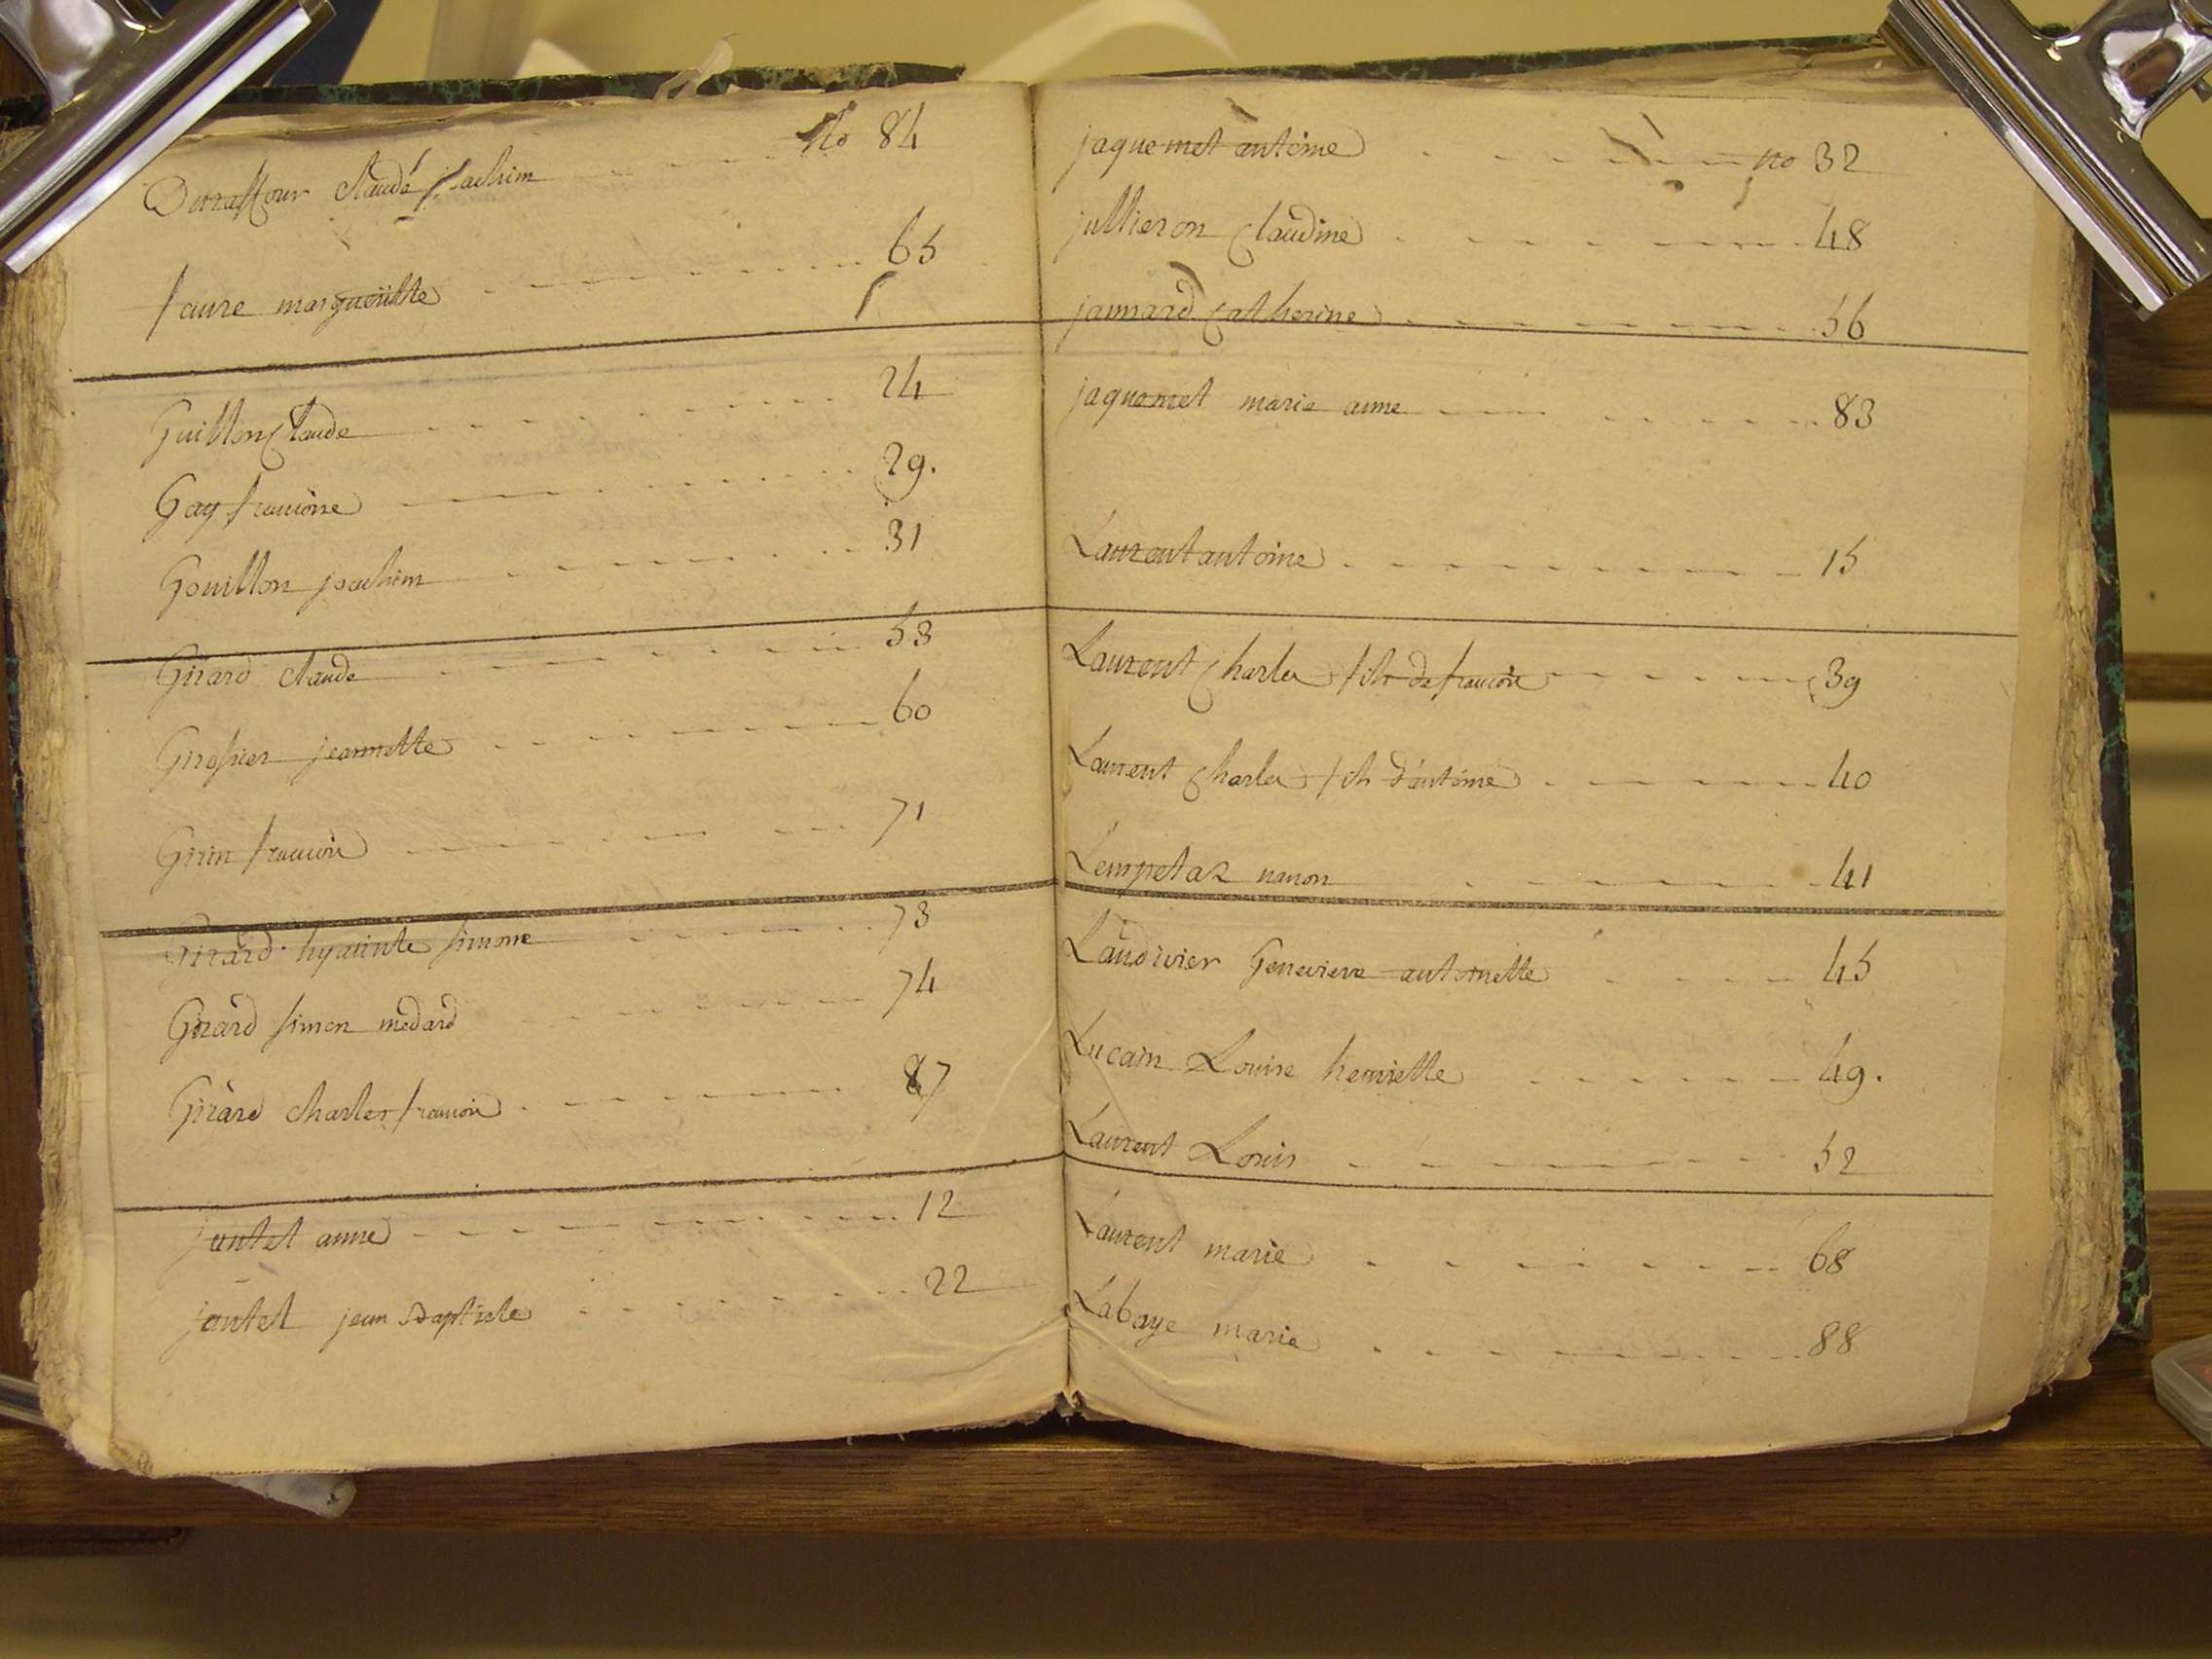 Duraffour Claude joachim no 84
faure margueritte 65
Guillon Claude 24
Gay francoise 29.
Gouillon joachim 31
Girard claude 53
Grosier jeannette 60
Girin francois 71
Girard hyacinte simone 73
Girard simon medard 74
Girard charles francois 87
jantet anne 12
jantet jean Baptiste 22
jaquemet antoine no 32
jullieron Claudine 48
jannard Catherine 56
jaquemet marie anne 83
Laurent antoine 15
Laurent Charles fils de francois 39
Laurent Charles fils d'antoine 40
Lempetaz nanon 41
Laudivier Genevieve antoinette 45
Lucain Louise henriette 49.
Laurent Louis 52
Laurent marie 68
Labaye marie 88